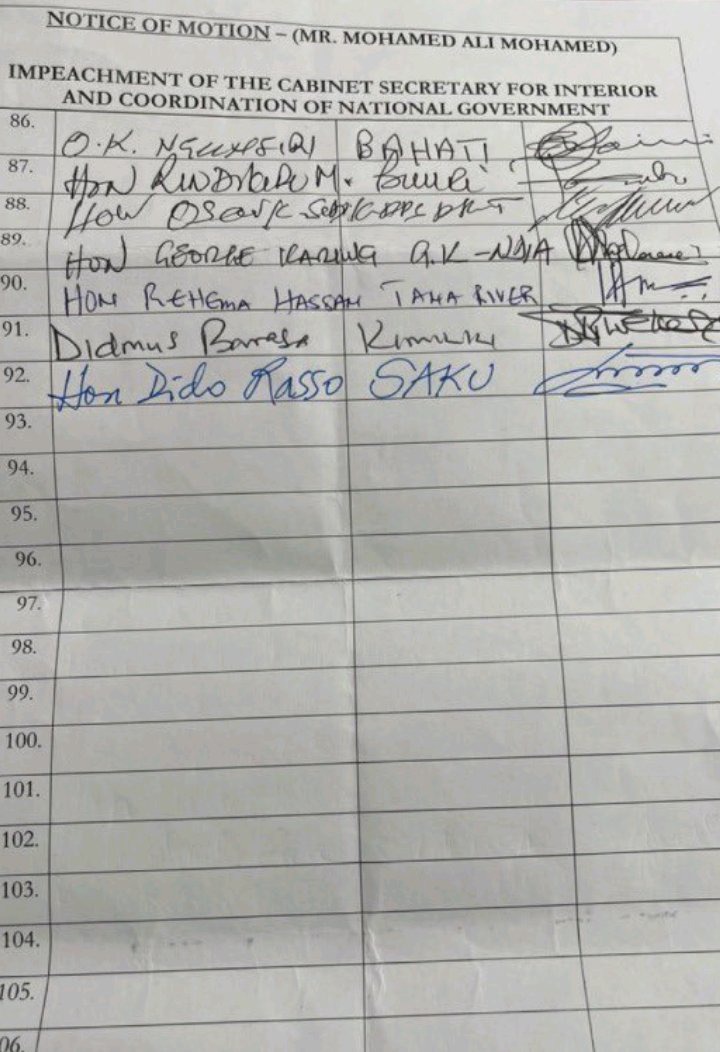 NOTICE OF MOTION – (MR. MOHAMED ALI MOHAMED)
IMPEACHMENT OF THE CABINET SECRETARY FOR INTERIOR
AND COORDINATION OF NATIONAL GOVERNMENT
86. O.K. BAHATI
87. HON M.
88. HON
89. HON GEORGE KARIUKI
90. HON REHEMA HASSAN TANA RIVER
91. Didmus Barasa Kimilili
92. Hon Dido Rasso SAKU
93.
94.
95.
96.
97.
98.
99.
100.
101.
102.
103.
104.
105.
06.